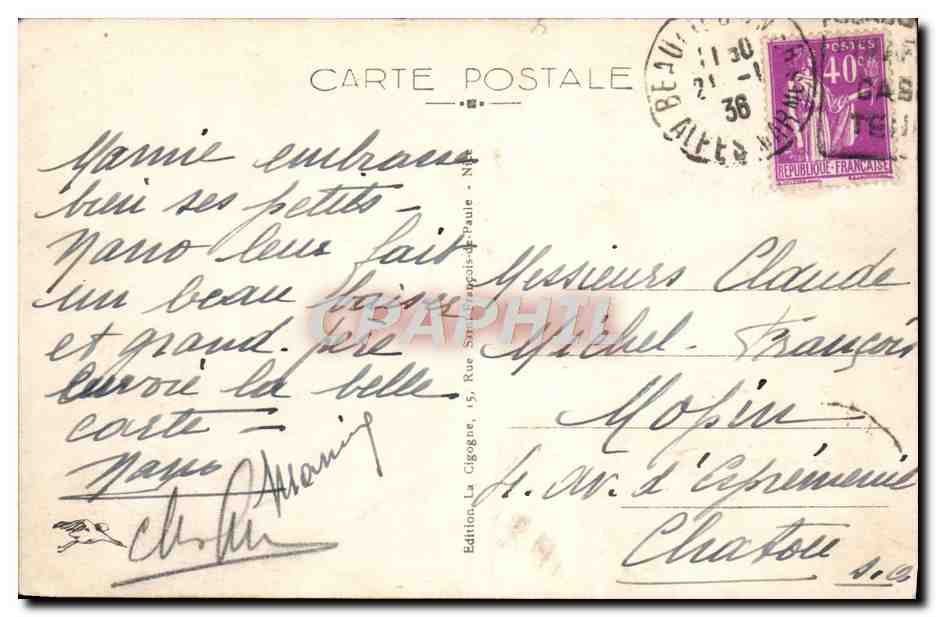 CARTE POSTALE
Mamie embrasse
bien ses petits -
Nano leur fait
un beau baiser
et grand-père
envoie la belle
carte -
Nano
Mamie
Edition La Cigogne, 15, Rue Saint-François-de-Paule - Nice
BEAU
11 30
21 -1
36
ALPES MARMES
POSTES
40c
REPUBLIQUE-FRANÇAISE
Messieurs Claude
Michel - François
Mopin
4. av. d'Esprémenil
Chatou
s.o
CPAPHIL